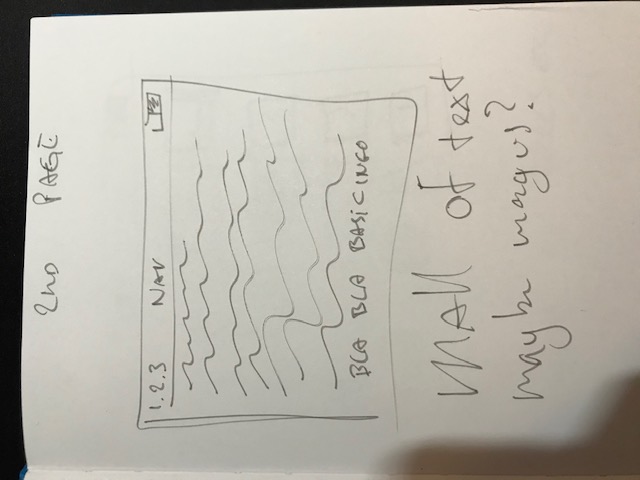 2ND PAGE
1.2.3 NAV
BLA BLA BASIC INFO
WALL of text
maybe